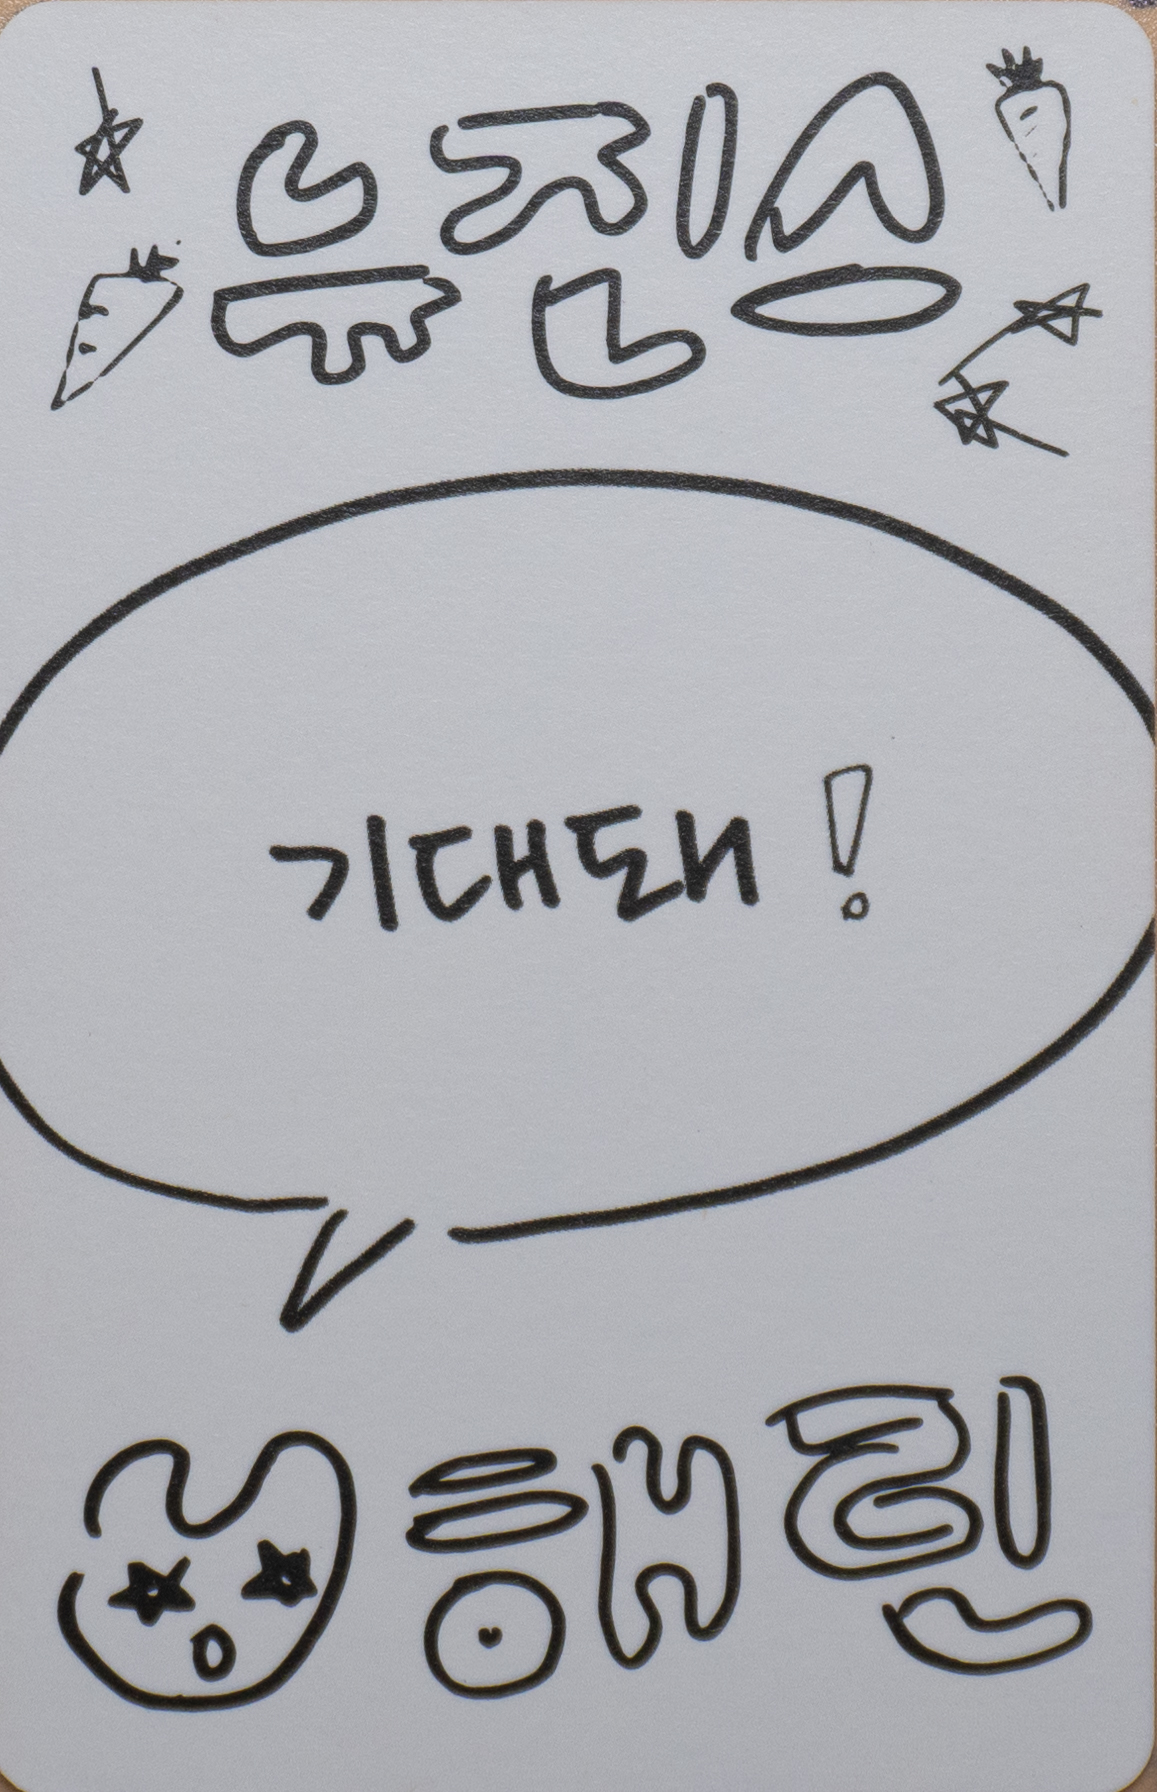 뉴진스
기대돼!
해린